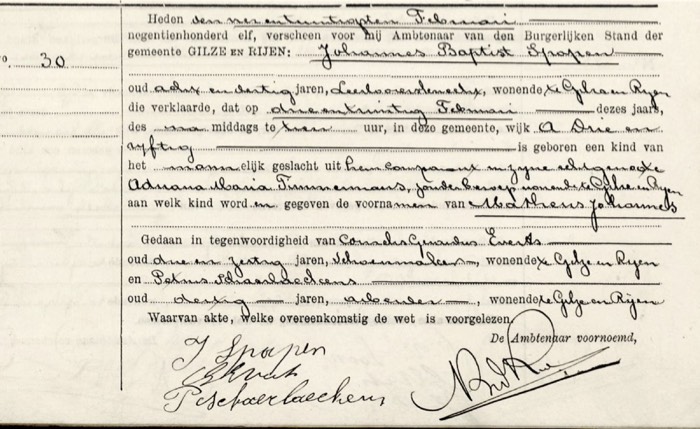 Heden den vier en twintigsten Februari
negentienhonderd elf, verscheen voor mij Ambtenaar van den Burgerlijken Stand der
gemeente GILZE EN RIJEN: Johannes Baptist Spapen
o. 30
oud acht en dertig jaren, Leerlooiersknecht, wonende te Gilze en Rijen
die verklaarde, dat op drie en twintig Februari dezes jaars,
des na middags te tien uur, in deze gemeente, wijk A Drie en
vijftig is geboren een kind van
het mannelijk geslacht uit hem comparant en zijne echtgenoote
Adriana Maria Timmermans, zonder beroep wonende te Gilze en Rijen
aan welk kind worden gegeven de voornamen van Matheus Johannes
Gedaan in tegenwoordigheid van Cornelis Gerardus Everts
oud drie en zestig jaren, schoenmaker, wonende te Gilze en Rijen
en Petrus Schaerlaeckens
oud dertig jaren, arbeider, wonende te Gilze en Rijen
Waarvan akte, welke overeenkomstig de wet is voorgelezen.
De Ambtenaar voornoemd,
J Spapen
P Schaerlaeckens